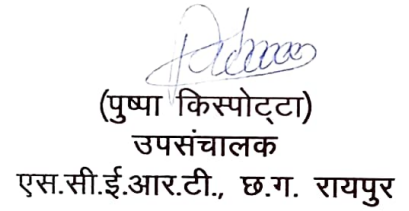 (पुष्पा किस्पोट्टा)
उपसंचालक
एस.सी.ई.आर.टी., छ.ग. रायपुर